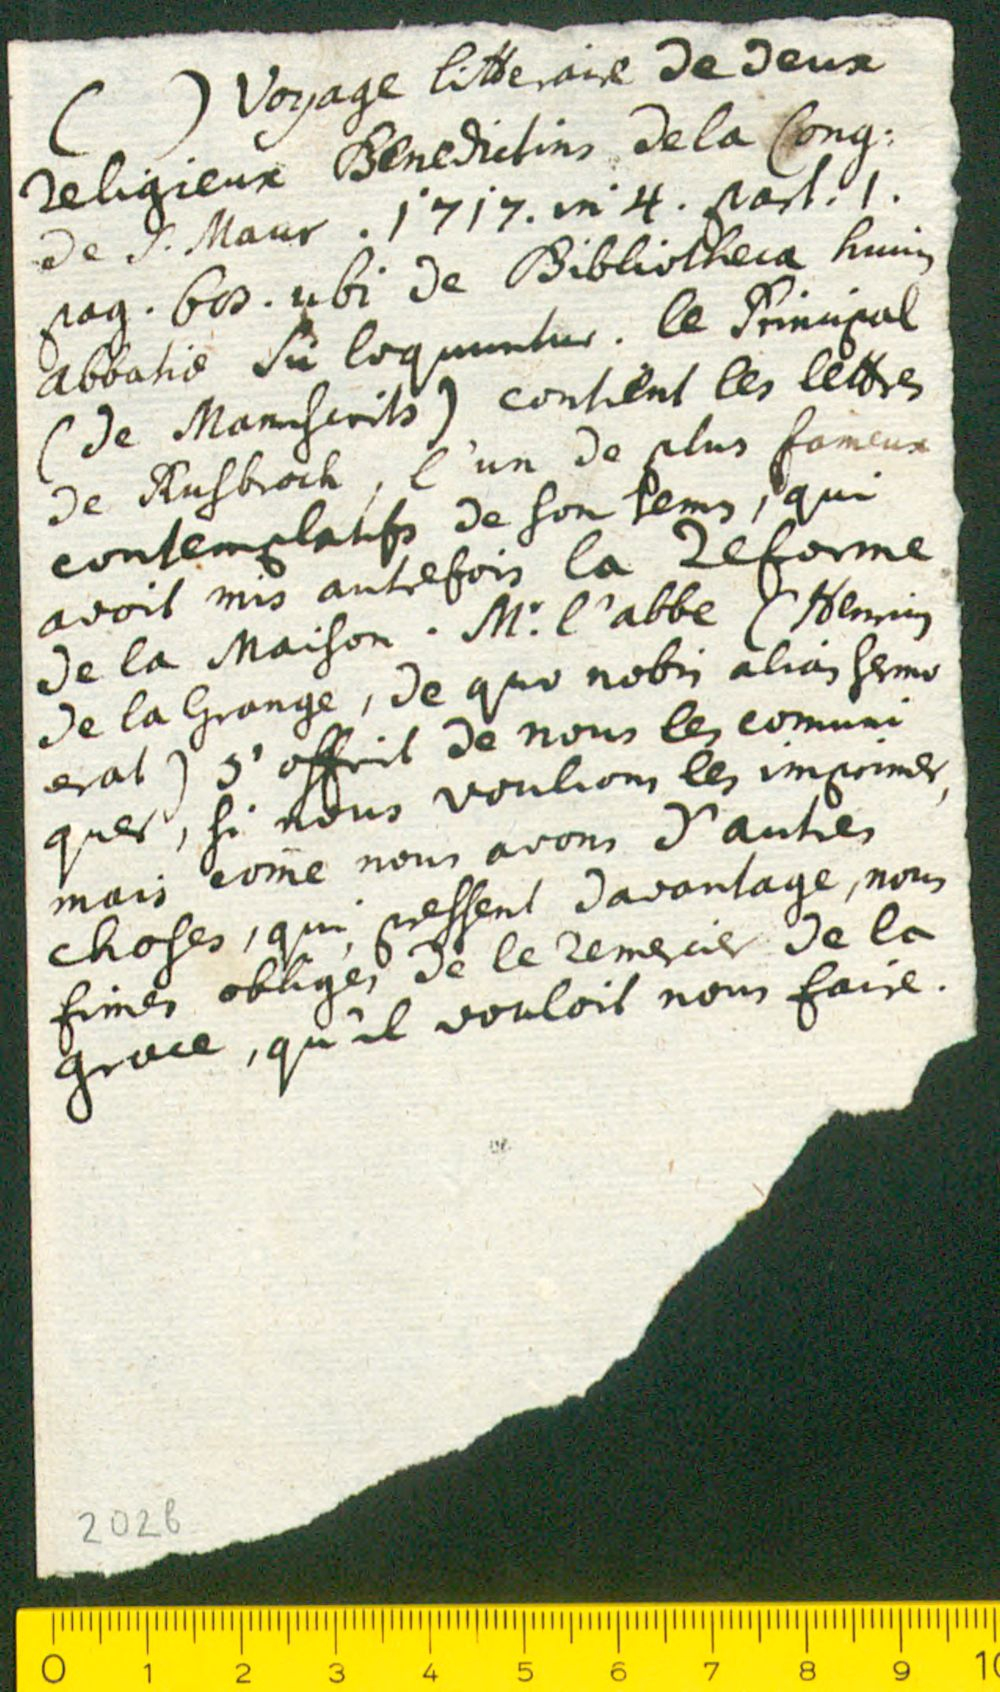 ( ) Voyage litteraire de deux
religieux Benedictins de la Cong:
de S. Maur. 1717. in 4. part. 1.
pag. 60. ubi de Bibliotheca huius
abbatiæ sic loquuntur. le Principal
(de Manuscrits) contient les lettres
de Rusbroch, l'un de plus fameux
contemplatifs de son tems, qui
avoit mis autrefois la reforme
de la Maison. Mr. l'abbe (Henricus
de la Grange, de quo nobis alias sermo
erat) s'offrit de nous les comuni
quer, si nous voulions les imprimer,
mais com̃e nous avons d'autres
choses, qui pressent davantage, nous
fimes obliges de le remercier de la
grace, qu'il vouloit nous faire.
2026
0 1 2 3 4 5 6 7 8 9 10